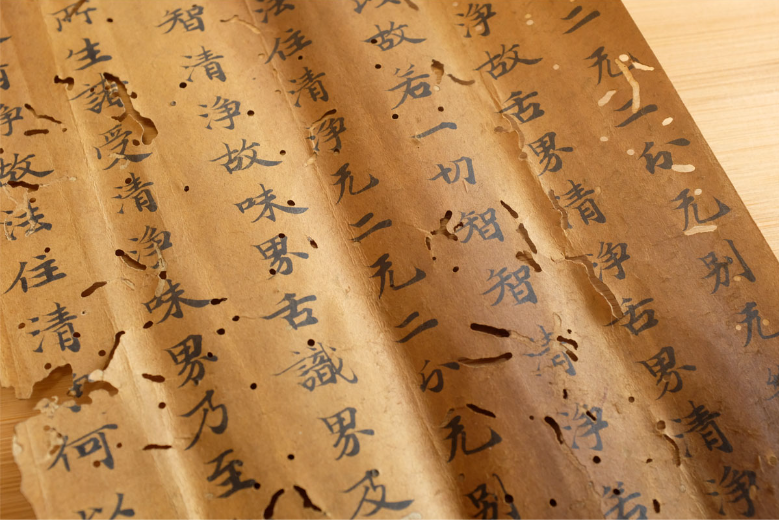 二无二分无別无
淨故舌界清淨舌界清淨
故若一切智智清淨
法住清淨无二无二分无別
智清淨故味界舌識界及
所生諸受清淨味界乃至
清淨故法住清淨何以